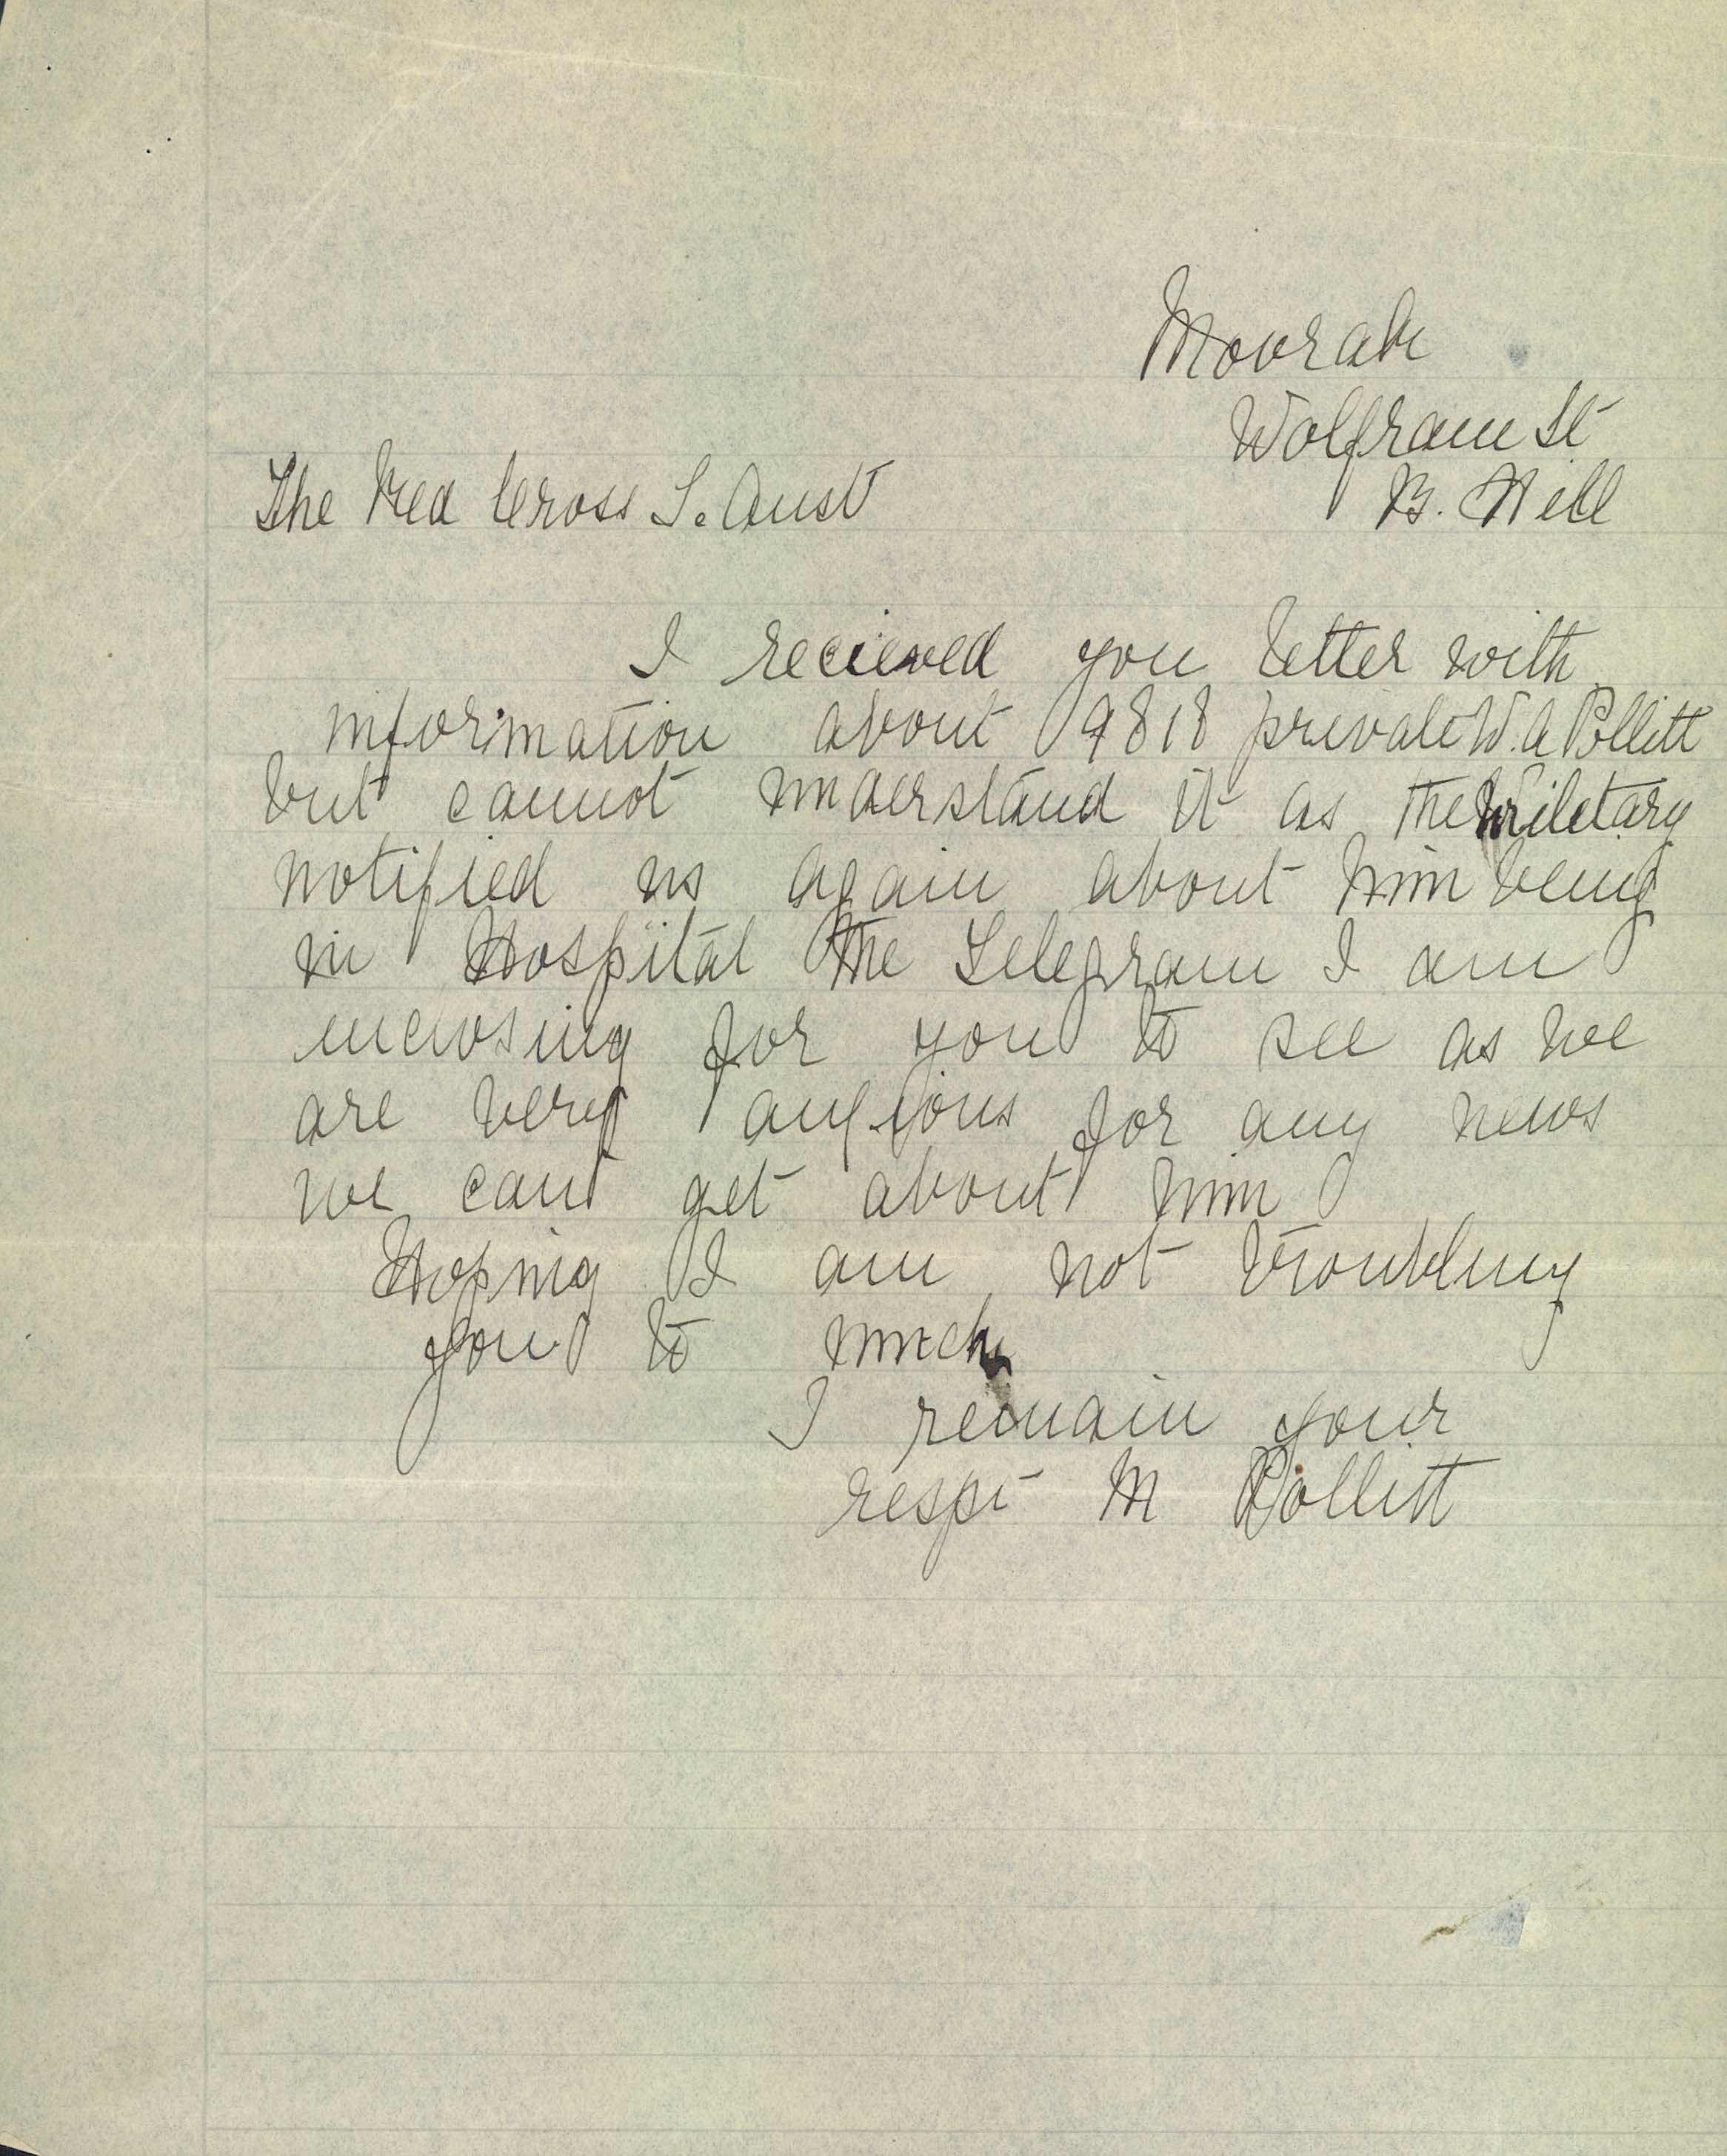 Moorah
Wolfram St
B. Hill
The Red Cross S. Aust
I recieved you letter with
information about 9818 private W. A Pollitt
but cannot understand it as the Miletary
notified us again about him being
in Hospital the Telegram I am
inclosing for you to see as we
are very anxious for any news
we can get about him
Hoping I am not troubling
you to much
I remain your
respt M Pollitt